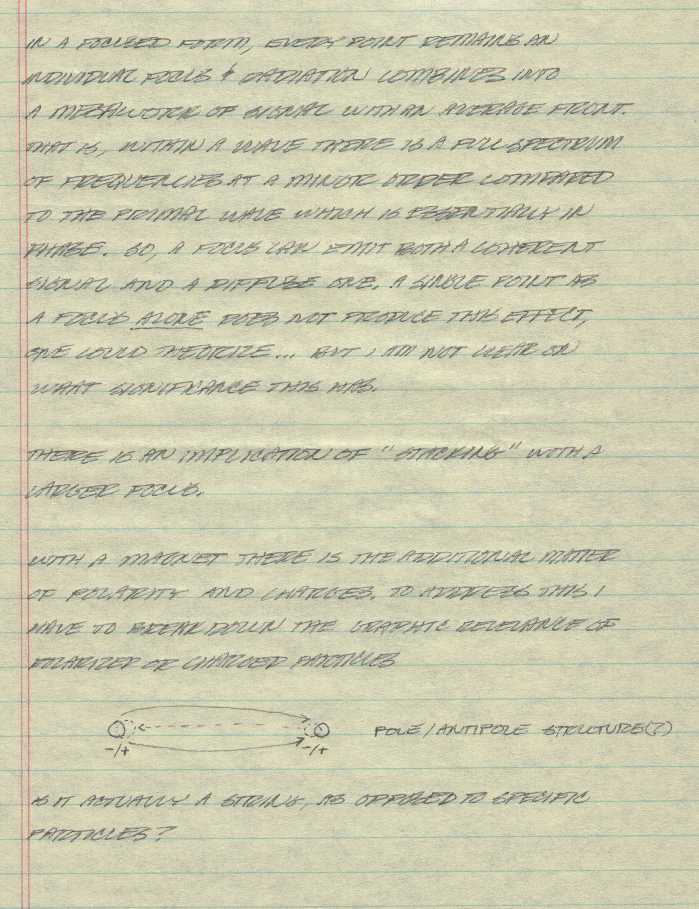 IN A FOCUSED FORM, EVERY POINT REMAINS AN
INDIVIDUAL FOCUS & RADIATION COMBINES INTO
A MESHWORK OF SIGNAL WITH AN AVERAGE FRONT.
THAT IS, WITHIN A WAVE THERE IS A FULL SPECTRUM
OF FREQUENCIES AT A MINOR ORDER COMPARED
TO THE PRIMAL WAVE WHICH IS ESSENTIALLY IN
PHASE. SO, A FOCUS CAN EMIT BOTH A COHERENT
SIGNAL AND A DIFFUSE ONE. A SINGLE POINT AS
A FOCUS ALONE DOES NOT PRODUCE THIS EFFECT,
ONE COULD THEORIZE... BUT I AM NOT CLEAR ON
WHAT SIGNIFICANCE THIS HAS.
THERE IS AN IMPLICATION OF "STACKING" WITH A
LARGER FOCUS.
WITH A MAGNET THERE IS THE ADDITIONAL MATTER
OF POLARITY AND CHARGES. TO ADDRESS THIS I
HAVE TO BREAK DOWN THE GRAPHIC RELEVANCE OF
POLARIZED OR CHARGED PARTICLES
-/+ -/+ POLE/ANTIPOLE STRUCTURE(?)
IS IT ACTUALLY A STRING, AS OPPOSED TO SPECIFIC
PARTICLES?